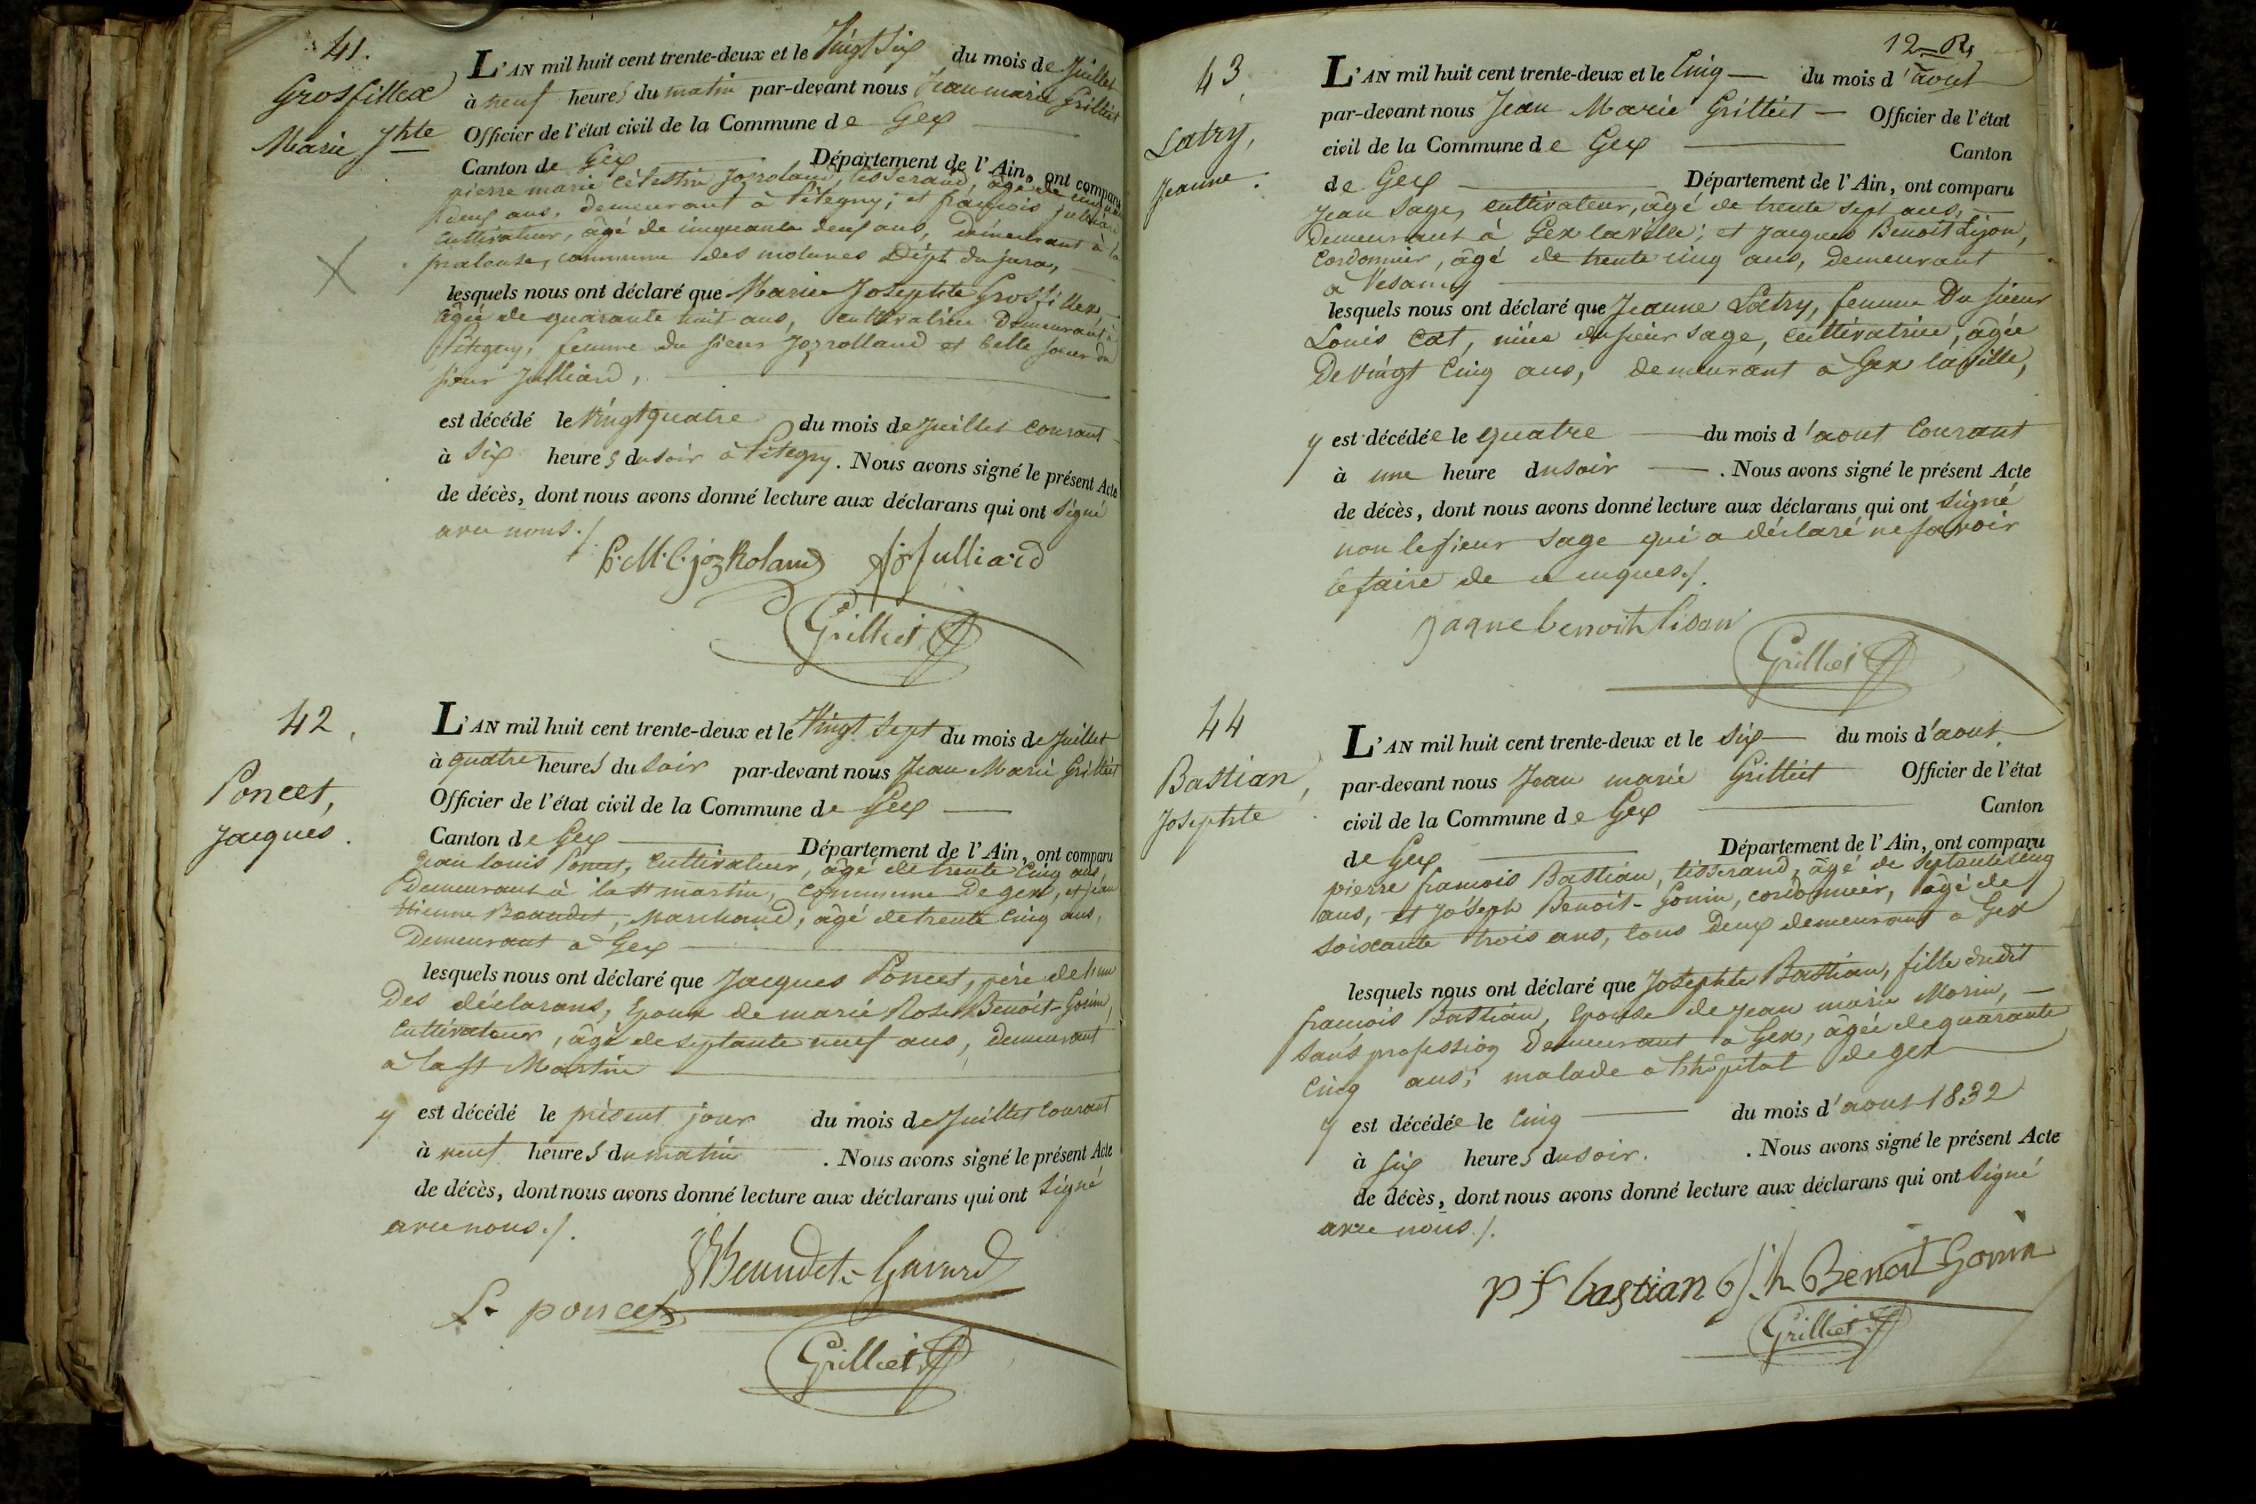 41.
Grosfillex
Marie Jhte
L'AN mil huit cent trente-deux et le Vingt Six du mois de Juillet
à neuf heures du matin par-devant nous Jean marie Grilliet
Officier de l'état civil de la Commune de Gex
Canton de Gex Département de l'Ain, ont comparu
pierre marie Célestin Jozroland, tisserand, âgé de cinquante
deux ans, demeurant à Pitegny; et françois julliard
Cultivateur, âgé de cinquante deux ans, demeurant à la
pralouse, commune des molunes Dépt du jura,
lesquels nous ont déclaré que Marie Josephte Grosfillex
âgée de quarante huit ans, cultivatrice Demeurant à
Pitegny, femme du sieur Jozrolland et belle soeur du
sieur Julliard,
est décédé le Vingt quatre du mois de Juillet courant
à Six heures du soir à Pitegny. Nous avons signé le présent Acte
de décès, dont nous avons donné lecture aux déclarans qui ont Signé
avec nous./.
P. M. C. joz Roland f j Julliard
Grilliet
42.
Poncet,
Jacques.
L'AN mil huit cent trente-deux et le Vingt Sept du mois de Juillet
à quatre heures du Soir par-devant nous Jean Marie Grilliet
Officier de l'état civil de la Commune de Gex
Canton de Gex Département de l'Ain, ont comparu
Jean Louis Poncet, Cultivateur, âgé de trente Cinq ans,
Demeurant à la St martin, Commune De gex, et jean
Etienne Beaudet, Marchand, âgé de trente Cinq ans,
Demeurant à Gex
lesquels nous ont déclaré que Jacques Poncet, père de l'un
Des déclarans, Epoux de marie Rose Benoit-Gonin,
Cultivateur, âgé de septante neuf ans, demeurant
à la St Martin
y est décédé le présent jour du mois de Juillet courant
à neuf heures du matin. Nous avons signé le présent Acte
de décès, dont nous avons donné lecture aux déclarans qui ont Signé
avec nous./.
Beaudet-Gavard
L. poncet
Grilliet
12 R
43.
Latry,
Jeanne.
L'AN mil huit cent trente-deux et le Cinq du mois d'aout
par-devant nous Jean Marie Grilliet Officier de l'état
civil de la Commune de Gex Canton
de Gex Département de l'Ain, ont comparu
Jean Sage, cultivateur, âgé de trente sept ans,
Demeurant à Gex laville; et Jacques Benoit Lizon,
Cordonnier, âgé de trente cinq ans, demeurant
à Vesancy
lesquels nous ont déclaré que Jeanne Latry, femme Du sieur
Louis Cat, nièce du sieur Sage, cultivatrice, âgée
De vingt Cinq ans, demeurant à Gex laville,
y est décédée le quatre du mois d'aout Courant
à une heure du soir. Nous avons signé le présent Acte
de décès, dont nous avons donné lecture aux déclarans qui ont Signé
non le sieur Sage qui a déclaré ne savoir
le faire de ce enquis./.
jaque benoith lisan
Grilliet
44
Bastian,
Josephte
L'AN mil huit cent trente-deux et le Six du mois d'aout
par-devant nous Jean marie Grilliet Officier de l'état
civil de la Commune de Gex Canton
de Gex Département de l'Ain, ont comparu
pierre francois Bastian, tisserand, âgé de Septante cinq
ans, et Joseph Benoit-Gonin, cordonnier, âgé de
soixante trois ans, tous Deux demeurant à Gex
lesquels nous ont déclaré que Josephte Bastian, fille dudit
francois Bastian, Epouse de Jean marie Morin,
sans profession Demeurant à Gex, âgée de quarante
Cinq ans, malade à l'hôpital de gex
y est décédée le Cinq du mois d'aout 1832
à Six heures du soir. Nous avons signé le présent Acte
de décès, dont nous avons donné lecture aux déclarans qui ont Signé
avec nous./.
p f bastian Jh Benoit Gonin
Grilliet